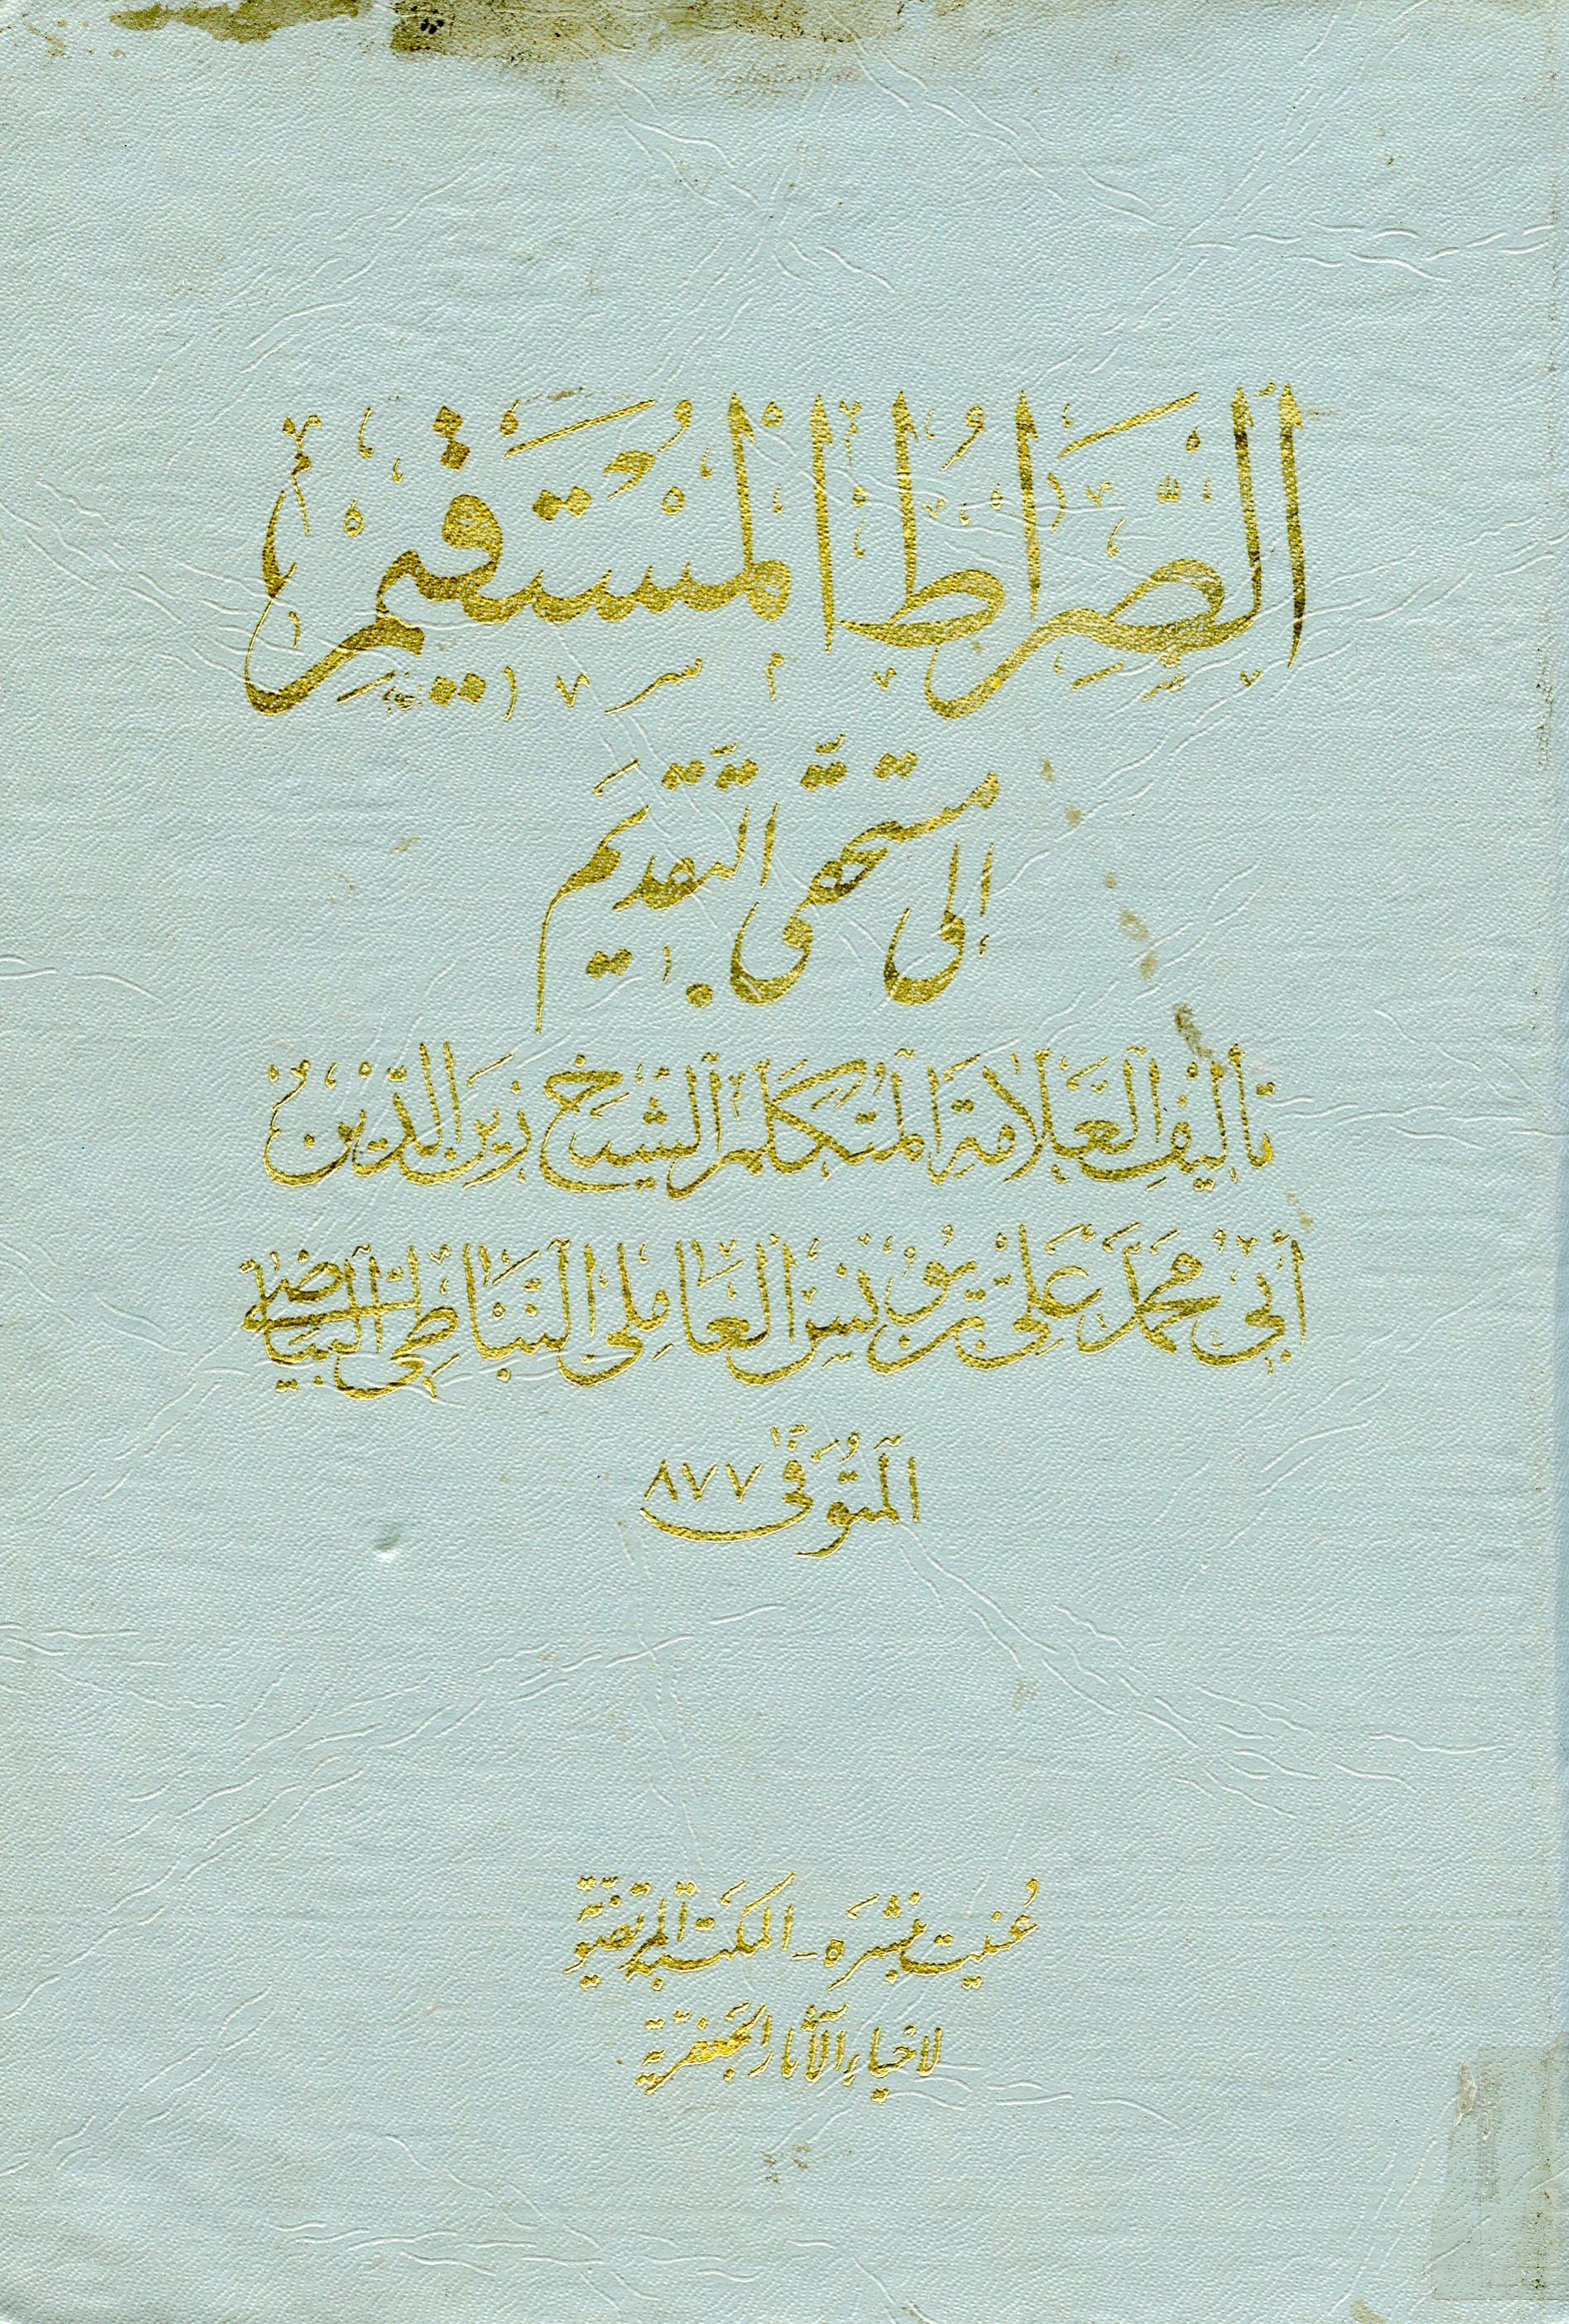 الصِّرَاطُ الْمُسْتَقِيمُ
إلى مستحقّى التَّقديَم
تأليف العَلّامة المُتكَلم الشيخ زين الدّين
أبي مُحَمَّد عَلي بن يُونس العَاملى النّبَاطى البَيَاضى
المتُوَفّى ٨٧٧
عُنيت بنشره - المكتبة المرتضَويّة
لاحياء الآثار الجَعفريّة